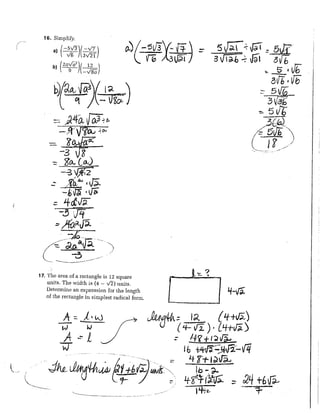 16. Simplify.
a) (-5√3/√6)(-√7/3√21)
b) (2a√a³/9)(12/-√8a)
a) (-5√3/√6)(-√7/3√21) = 5√21 ÷√21/3√126 ÷√21 = 5√1/3√6
= 5 · √6/3√6 · √6
= 5√6/3√36
= 5√6/3(6)
= 5√6/18
b) (2a√a³/9)(12/-√8a)
= 24a√a³ ÷a/-9√8a ÷a
= 8a√a²/-3√8
= 8a(a)/-3√4·2
= 8a² · √2/-6√2 · √2
= 4a²√2
= 2a²√2/-3
17. The area of a rectangle is 12 square
units. The width is (4 − √2) units.
Determine an expression for the length
of the rectangle in simplest radical form.
l = ?
4-√2
A/w = l·w/w
A/w = l
length = 12 (4+√2)/(4-√2)·(4+√2)
= 48+12√2/16+4√2-4√2-√4
= 48+12√2/16-2
= 48+12√2/14 = 24+6√2/7
The length is (24+6√2/7) units.